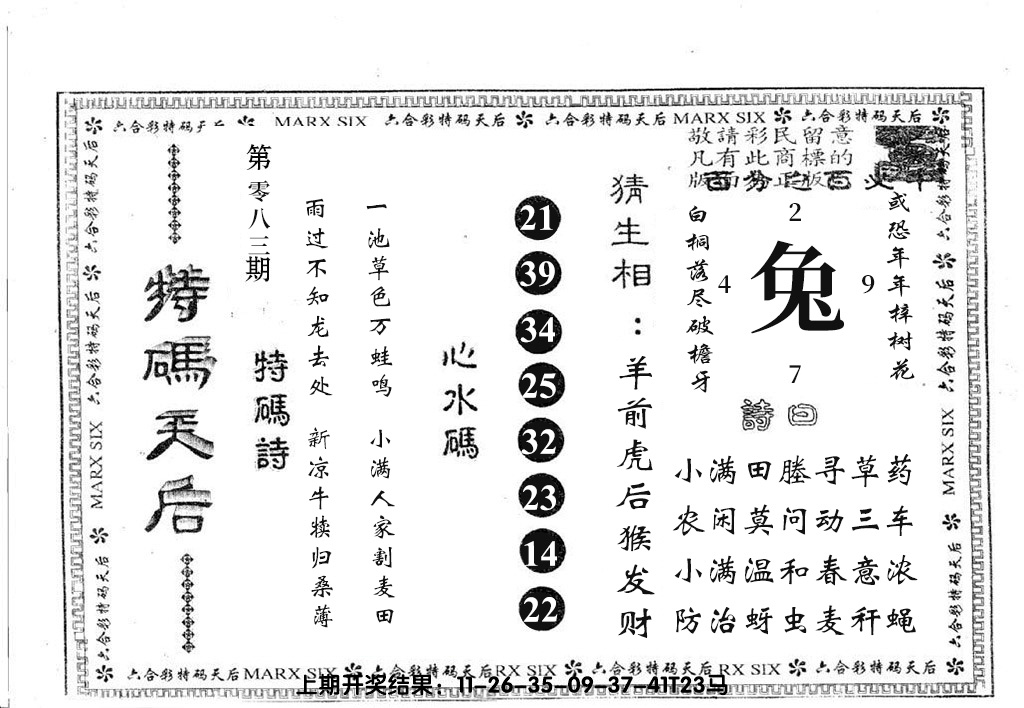 六合彩特码天后 MARX SIX 六合彩特码天后 六合彩特码天后 MARX SIX 六合彩特码天后
敬請彩民留意
凡有此商標的
版面為正版
特碼天后
第零八三期
特碼詩
雨过不知龙去处 新凉牛犊归桑薄
一池草色万蛙鸣 小满人家割麦田
心水碼
21
39
34
25
32
23
14
22
猜生相：羊前虎后猴发财
白桐落尽破檐牙
2
4 兔 9
7
或恐年年梓树花
詩曰
小满田塍寻草药
农闲莫问动三车
小满温和春意浓
防治蚜虫麦秆蝇
六合彩特码天后 MARX SIX 六合彩特码天后
六合彩特码天后 MARX SIX 六合彩特码天后
六合彩特码天后 MARX SIX 六合彩特码天后 RX SIX 六合彩特码天后 RX SIX 六合彩特码天后
上期开奖结果：11-26-35-09-37-41T23马